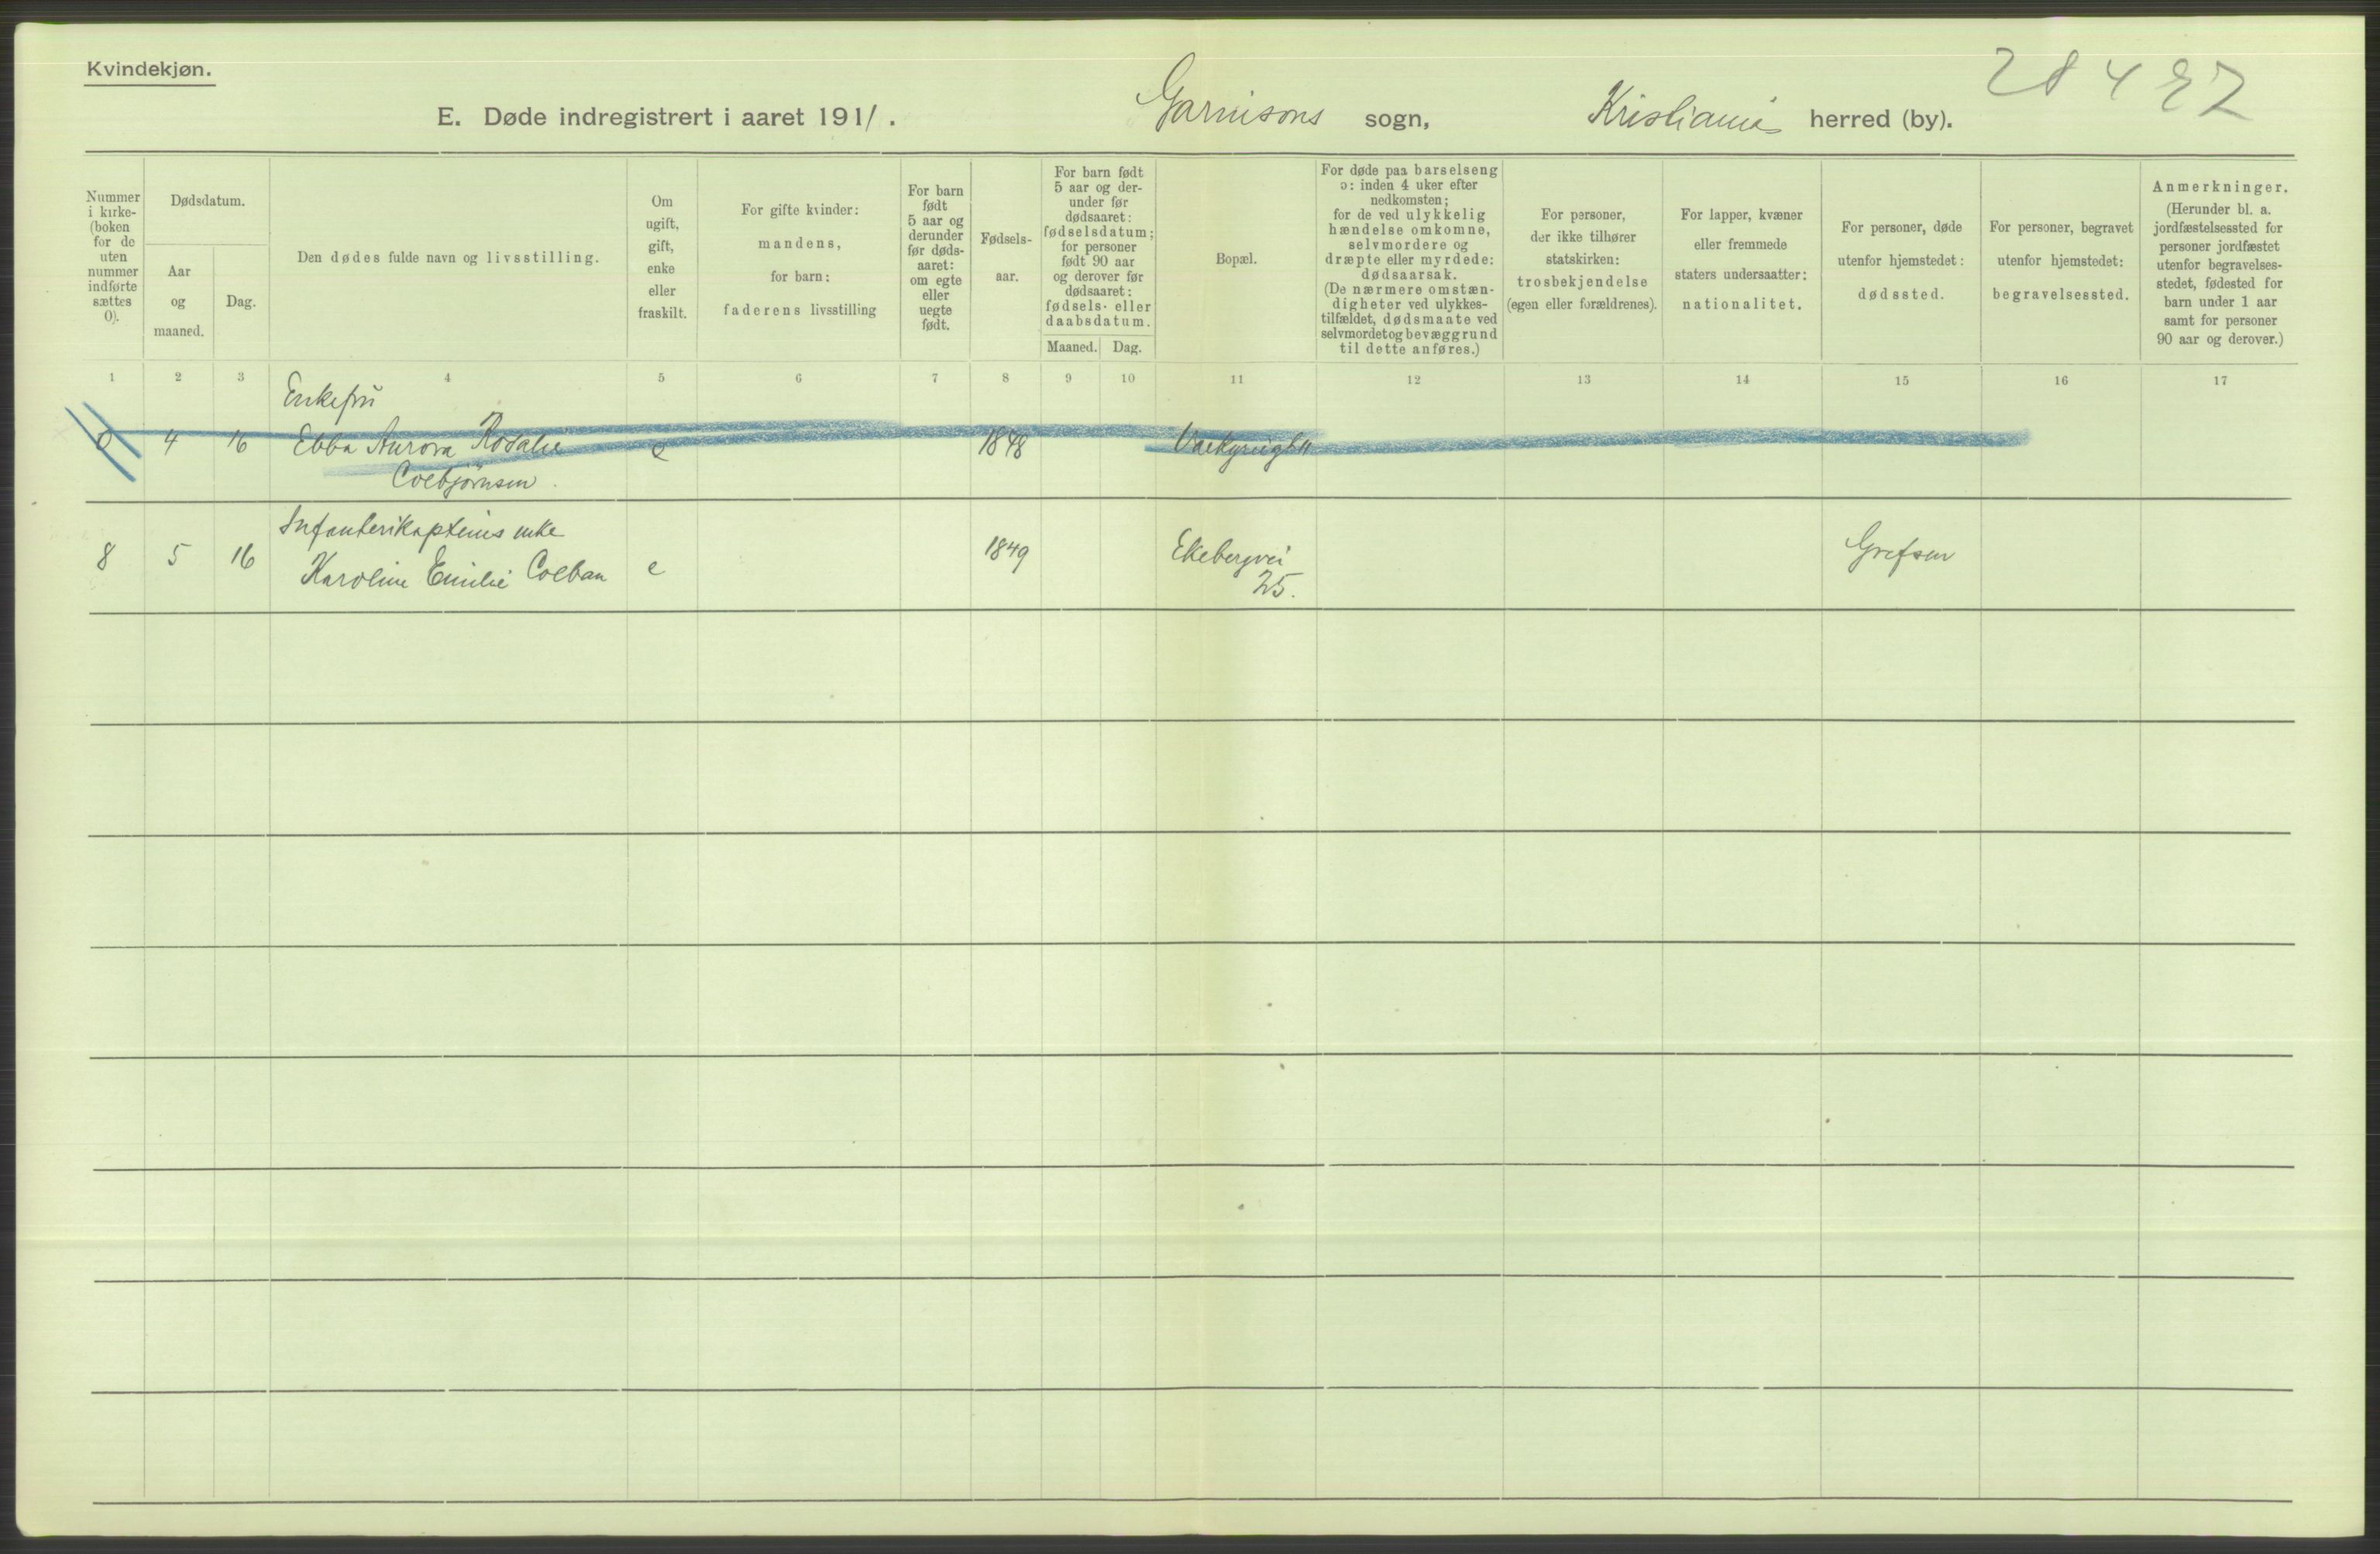 Kvindekjøn.
28482
E. Døde indregistrert i aaret 1911. Garnisons sogn, Kristiania herred (by).
Nummer i kirke-(boken for de uten nummer indførte sættes 0).
Dødsdatum.
Aar og maaned.
Dag.
Den dødes fulde navn og livsstilling.
Om ugift, gift, enke eller fraskilt.
For gifte kvinder: mandens, for barn: faderens livsstilling
For barn født 5 aar og derunder før døds-aaret: om egte eller uegte født.
Fødsels-aar.
For barn født 5 aar og der-under før dødsaaret: fødselsdatum; for personer født 90 aar og derover før dødsaaret: fødsels- eller daabsdatum.
Maaned. Dag.
Bopæl.
For døde paa barselseng ɔ: inden 4 uker efter nedkomsten; for de ved ulykkelig hændelse omkomne, selvmordere og dræpte eller myrdede: dødsaarsak. (De nærmere omstæn-digheter ved ulykkes-tilfældet, dødsmaate ved selvmordet og bevæggrund til dette anføres.)
For personer, der ikke tilhører statskirken: trosbekjendelse (egen eller forældrenes).
For lapper, kvæner eller fremmede staters undersaatter: nationalitet.
For personer, døde utenfor hjemstedet: dødssted.
For personer, begravet utenfor hjemstedet: begravelsessted.
Anmerkninger. (Herunder bl. a. jordfæstelsessted for personer jordfæstet utenfor begravelses-stedet, fødested for barn under 1 aar samt for personer 90 aar og derover.)
1 2 3 4 5 6 7 8 9 10 11 12 13 14 15 16 17
Enkefru
0 4 16 Ebba Aurora Rosalie e 1848
Colbjørnsen.
Infanterikapteins enke
8 5 16 Karoline Emilie Colban e 1849 Ekebergvei Grefsen
25.